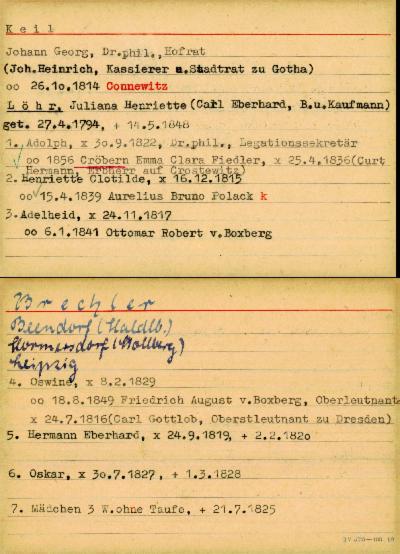 Keil
Johann Georg, Dr.phil., Hofrat
(Joh.Heinrich, Kassierer u.Stadtrat zu Gotha)
oo 26.10.1814 Connewitz
Löhr, Juliana Henriette (Carl Eberhard, B.u.Kaufmann)
get. 27.4.1794, + 14.5.1848
1. Adolph, x 30.9.1822, Dr.phil., Legationssekretär
oo 1856 Cröbern Emma Clara Fiedler, x 25.4.1836(Curt
Hermann, Erbherr auf Crostewitz)
2. Henriette Clotilde, x 16.12.1815
oo 15.4.1839 Aurelius Bruno Polack k
3. Adelheid, x 24.11.1817
oo 6.1.1841 Ottomar Robert v.Boxberg
Brechler
Beendorf
Leipzig
4. Oswine, x 8.2.1829
oo 18.8.1849 Friedrich August v.Boxberg, Oberleutnant
x 24.7.1816(Carl Gottlob, Oberstleutnant zu Dresden)
5. Hermann Eberhard, x 24.9.1819, + 2.2.1820
6. Oskar, x 30.7.1827, + 1.3.1828
7. Mädchen 3 W.ohne Taufe, + 21.7.1825